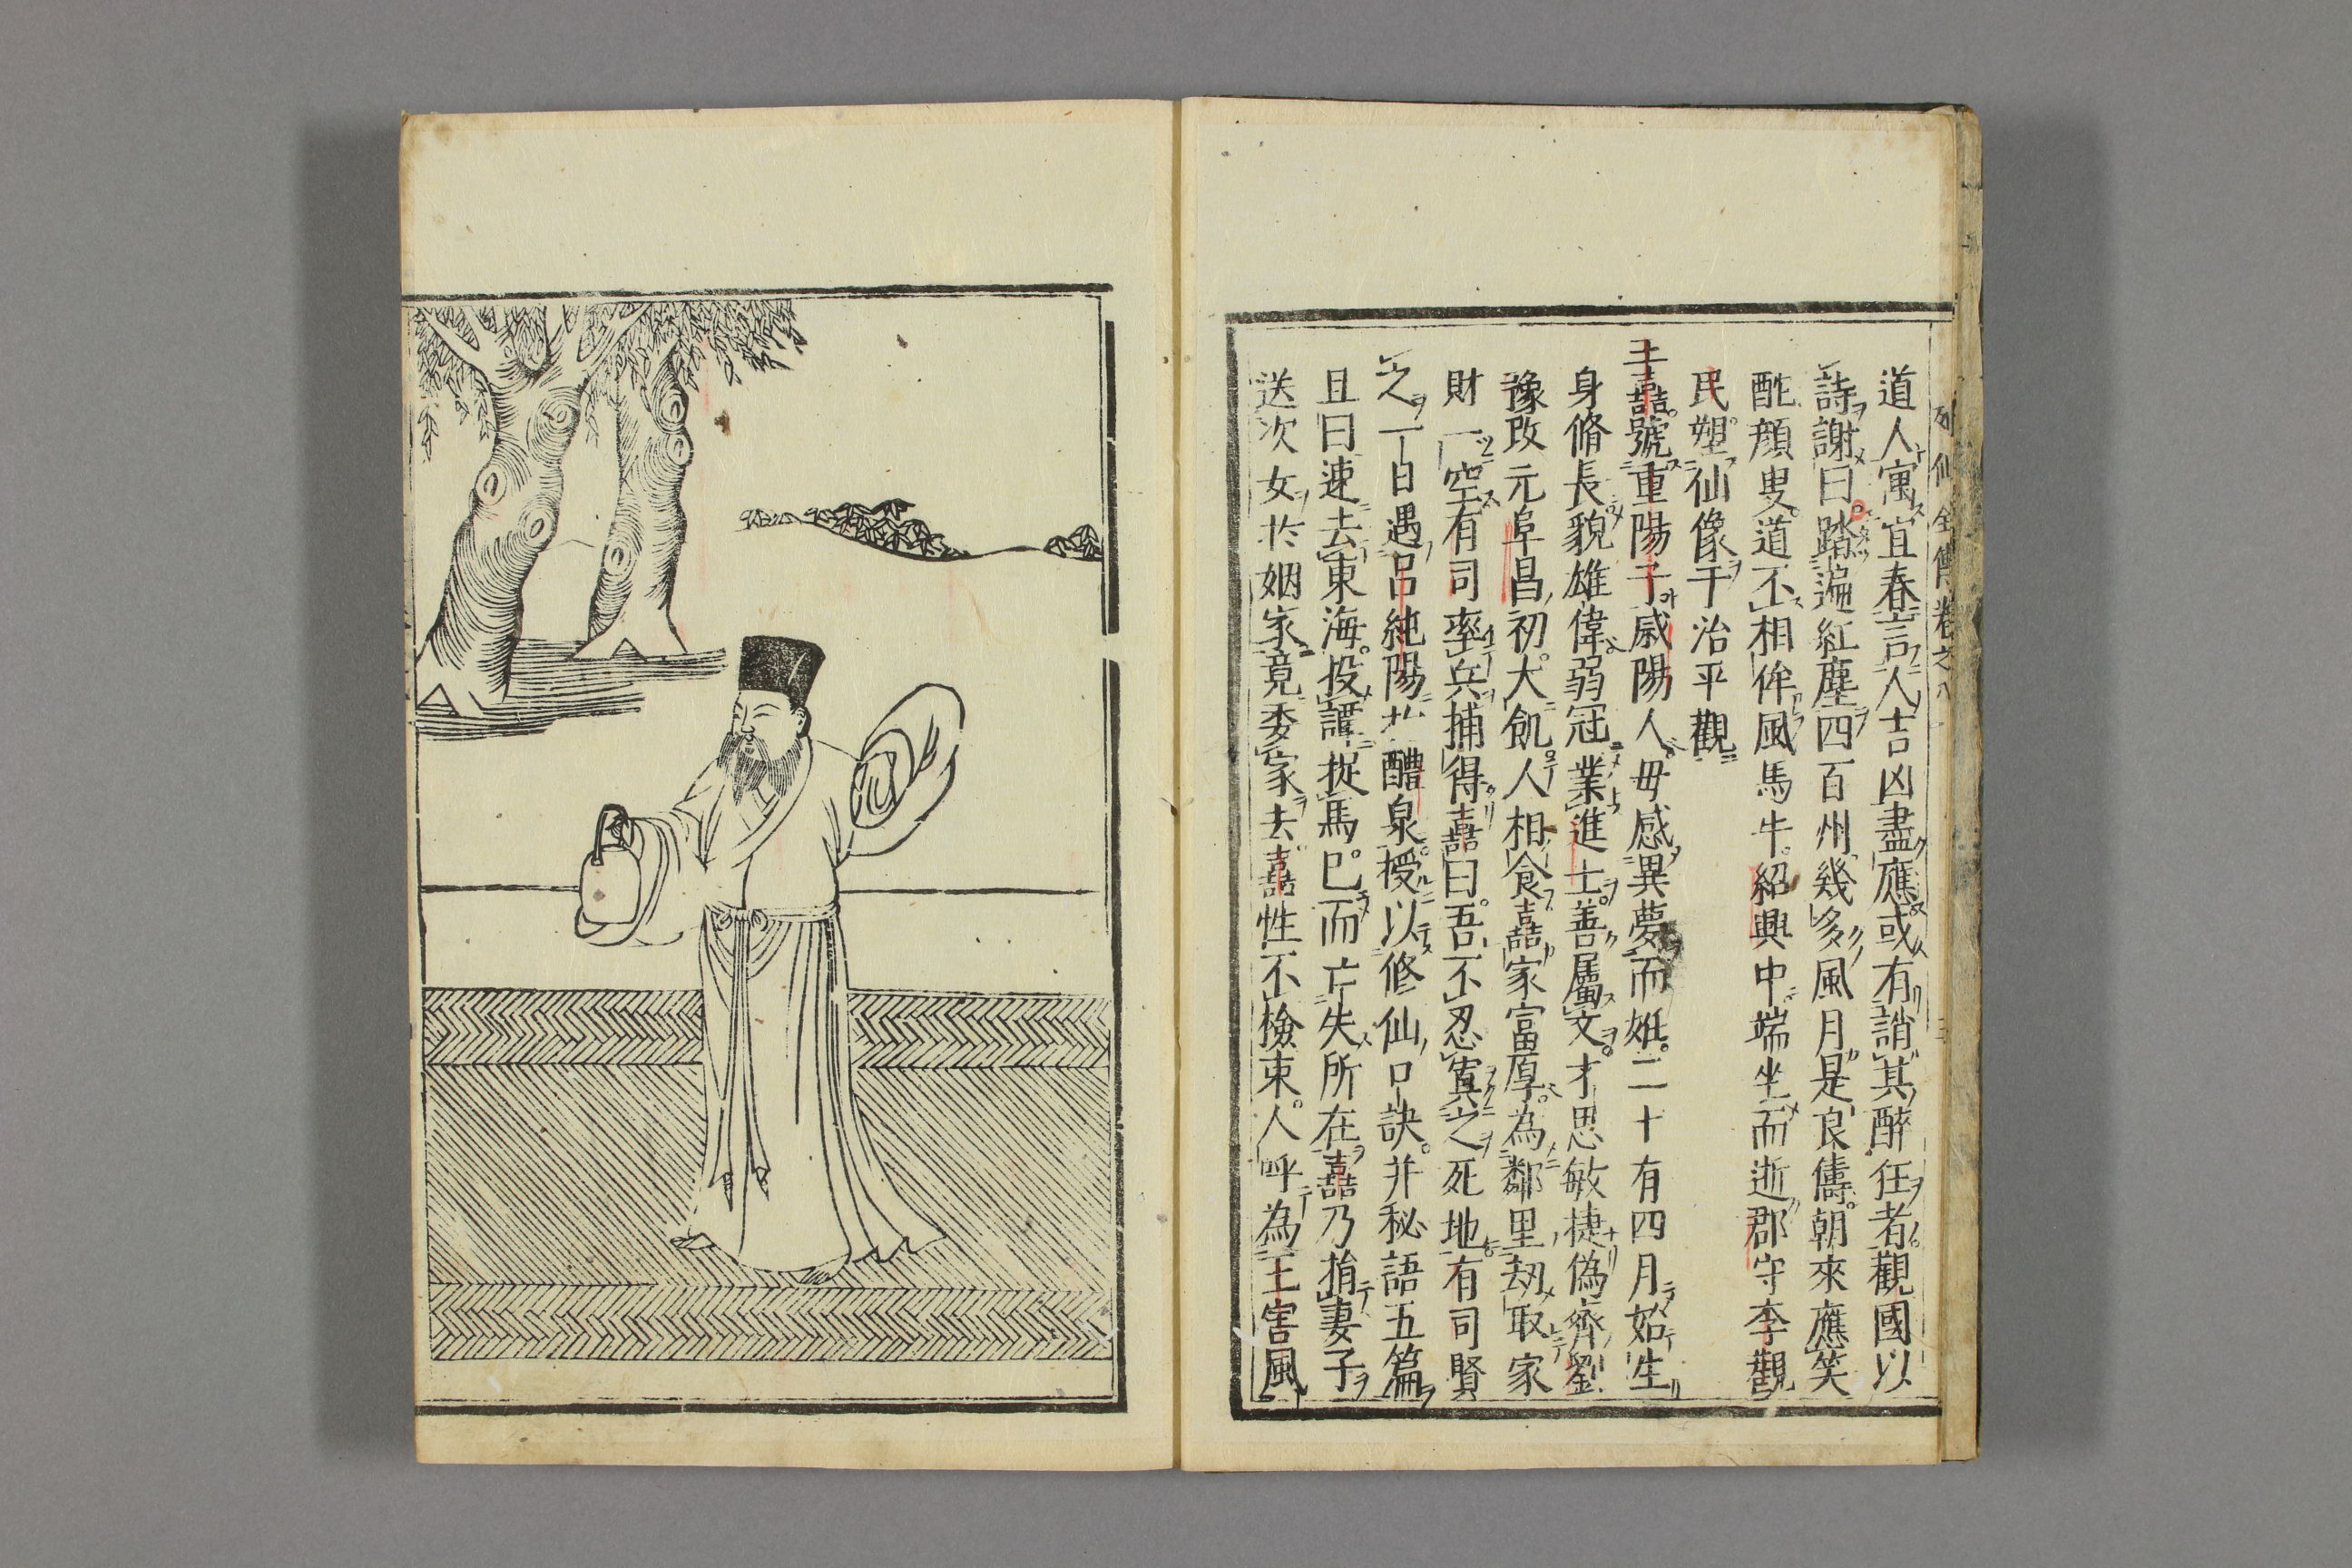 列仙全傳卷之八
道人寓宜春言人吉凶盡應或有誚其醉狂者觀國以
詩謝曰踏遍紅塵四百州幾多風月是良儔朝來應笑
酡顔叟道不相侔風馬牛紹興中端坐而逝郡守李觀
民塑仙像于治平觀
王嚞號重陽子咸陽人母感異夢而姙二十有四月始生
身脩長貌雄偉弱冠業進士善屬文才思敏捷偽齊劉
豫改元阜昌初大飢人相食嚞家富厚為鄰里刼取家
財一空有司率兵捕得嚞曰吾不忍寘之死地有司賢
之一日遇呂純陽於醴泉授以修仙口訣并秘語五篇
且曰速去東海投譚捉馬已而亡失所在嚞乃捐妻子
送次女於姻家竟委家去嚞性不檢束人呼為王害風